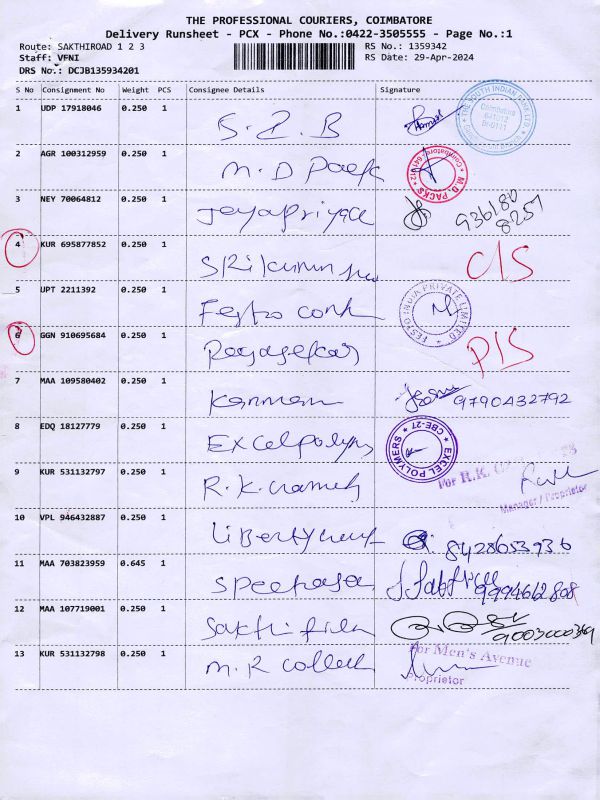 THE PROFESSIONAL COURIERS, COIMBATORE
Delivery Runsheet - PCX - Phone No.:0422-3505555 - Page No.:1
Route: SAKTHIROAD 1 2 3
RS No.: 1359342
Staff: VENI
RS Date: 29-Apr-2024
DRS No.: DCJB135934201
S No Consignment No Weight PCS Consignee Details Signature
1 UDP 17918046 0.250 1 S.I.B
THE SOUTH INDIAN BANK LTD Coimbatore 641012
2 AGR 100312959 0.250 1 M.D Pack
M.D. PACKS Coimbatore 641 012
3 NEY 70064812 0.250 1 Jeyapriya 936180
8257
4 KUR 695877852 0.250 1 Srikumun C/S
5 UPT 2211392 0.250 1 Festo cont
FESTO INDIA PRIVATE LIMITED
6 GGN 910695684 0.250 1 Rajasekar P/S
7 MAA 109580402 0.250 1 Kannan 9790432792
8 EDQ 18127779 0.250 1 Excel polym
EXCEL POLYMERS CBE-27
9 KUR 531132797 0.250 1 R.K. For R.K.
Manager / Proprietor
10 VPL 946432887 0.250 1 Liberty 8428653936
11 MAA 703823959 0.645 1 9994612808
12 MAA 107719001 0.250 1 Sakthi 9003000369
13 KUR 531132798 0.250 1 M.R collect For Men's Avenue
Proprietor